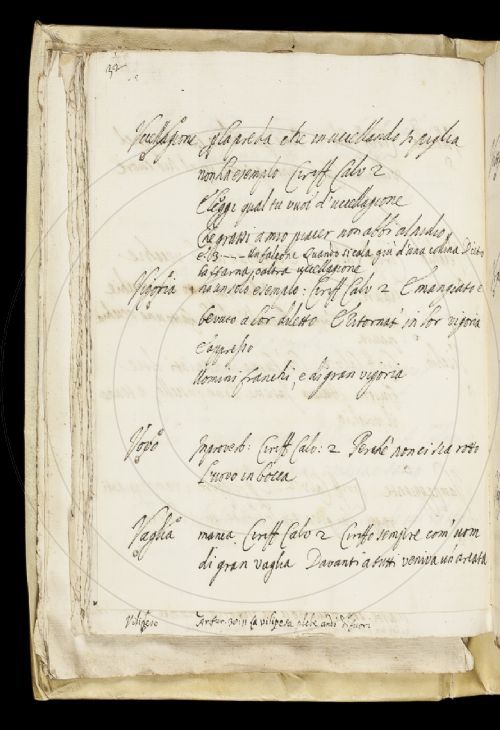 32
Uccellagione p la preda che in uccellando si piglia
non ha esemplo Ciriff Calv 2
E leggi qual tu vuoi d'uccellagione
Che grassi a mio piacer non abbi al nidio
e l 3 Un falcone quando si cala giù d'una collina Dietro
la starna, o altra uccellagione
Vigoria ha un solo esemplo: Ciriff Calv 2 E mangiato e
bevuto a lor diletto E ritornat' in lor vigoria
E appresso
Uomini franchi e di gran vigoria
Vovo In proverb: Ciriff Calv: 2 Perche non ci sia rotto
L'uovo in bocca
Vaglia manca. Ciriff Calv 2 Ciriffo sempre com' uom
di gran vaglia Davanti a tutti veniva un' arcata
Vilipeso la vilipesa plebe andò di fuori